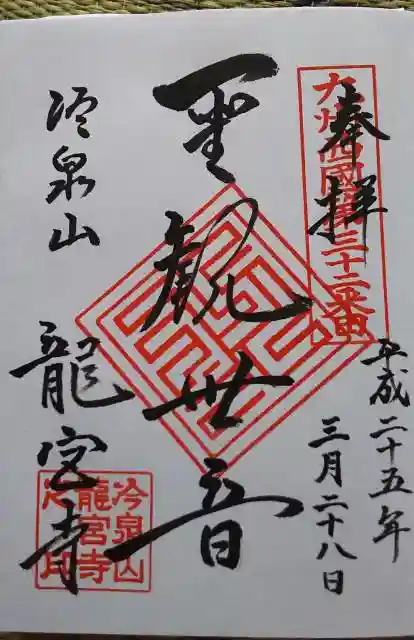 奉拝
九州西國第三十二番
平成二十五年
三月二十八日
聖観世音
冷泉山
龍宮寺
冷泉山
龍宮寺
之印